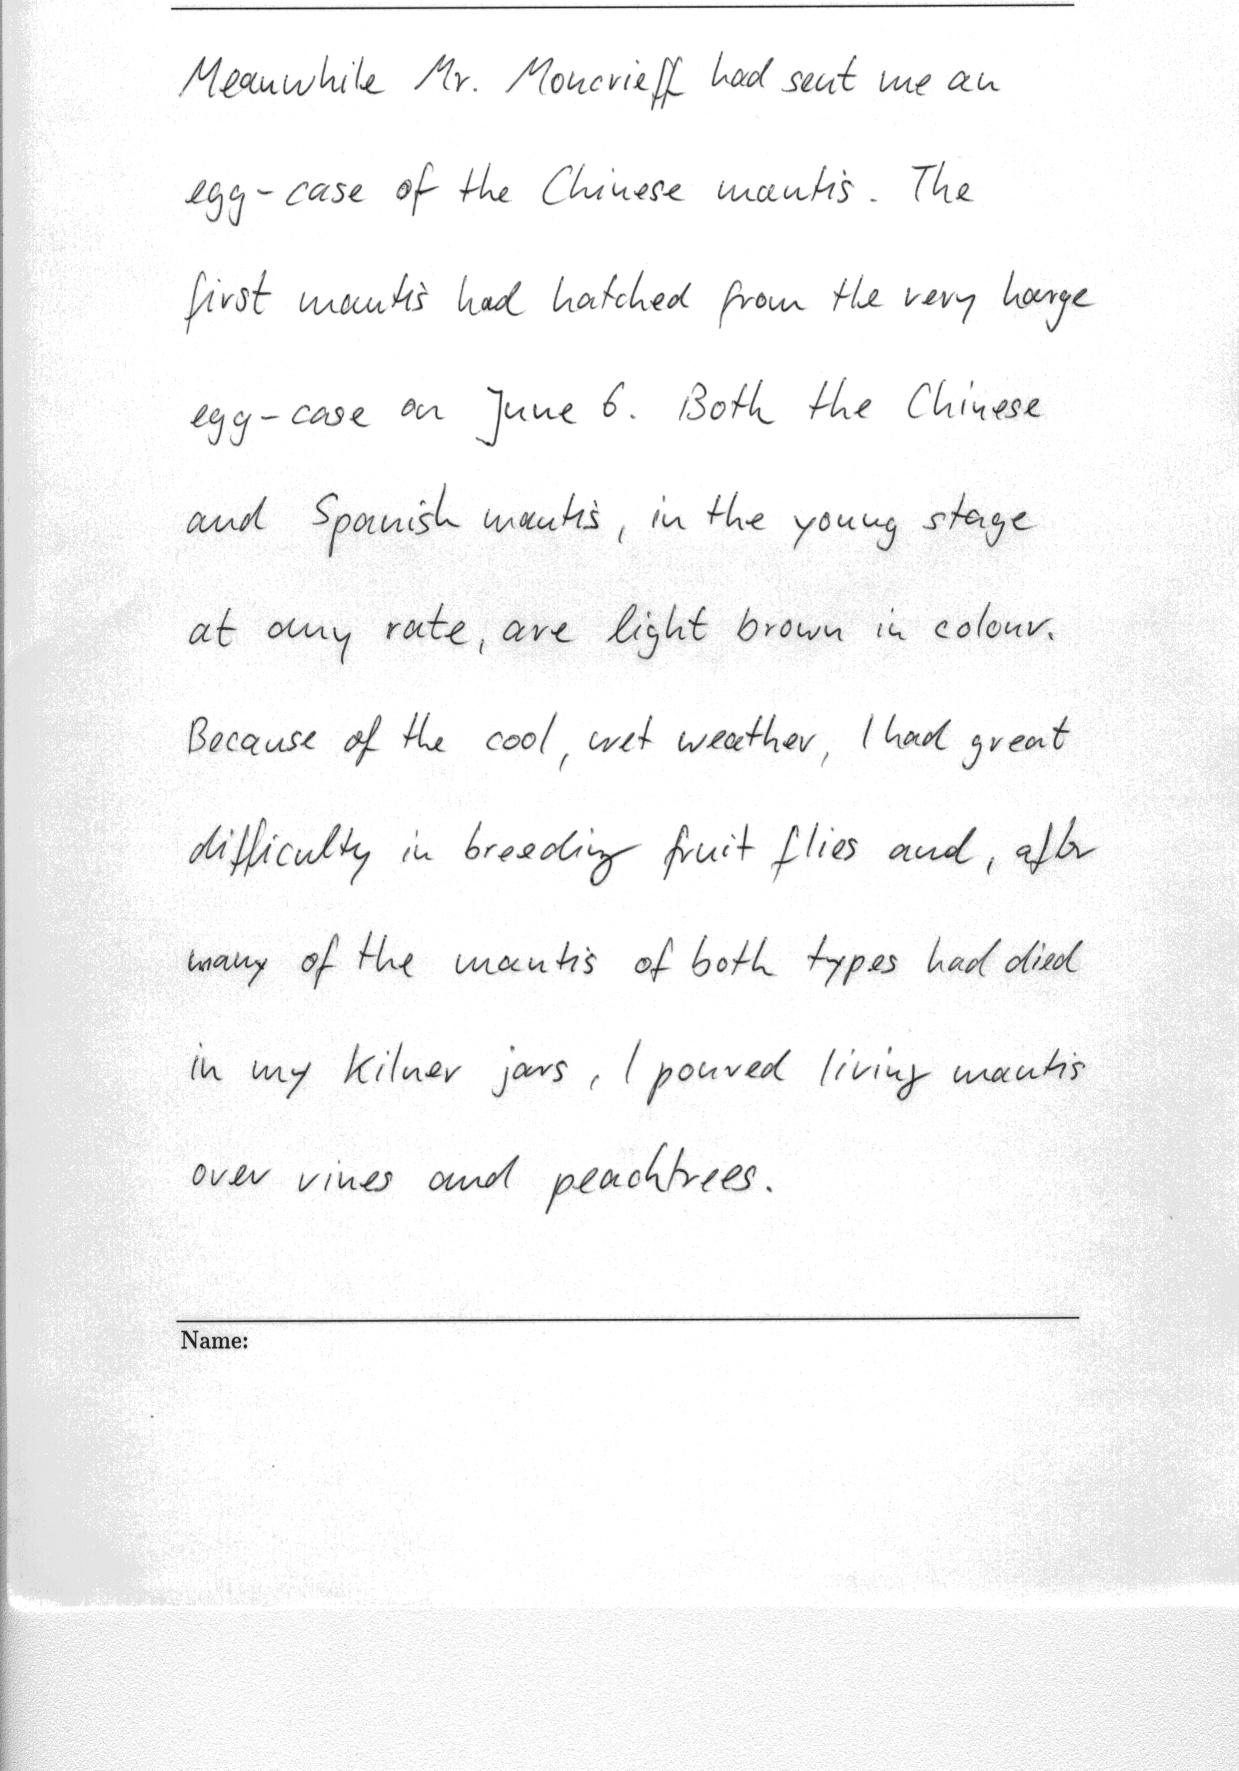 Meanwhile Mr. Moncrieff had sent me an
egg-case of the Chinese mantis. The
first mantis had hatched from the very harge
egg-case on June 6. Both the Chinese
and Spanish mantis, in the young stage
at any rate, are light brown in colour.
Because of the cool, wet weather, I had great
difficulty in breeding fruit flies and, after
many of the mantis of both types had died
in my Kilner jars, I poured living mantis
over vines and peachtrees.
Name: